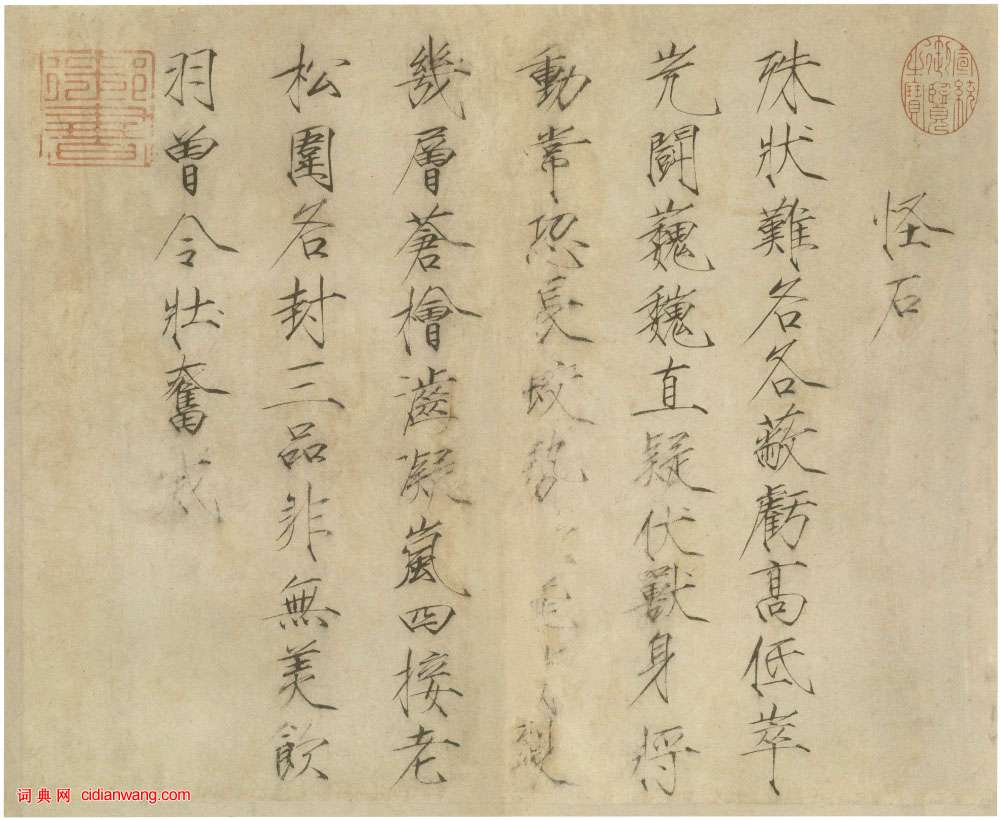 怪石
殊狀難各各蔽虧高低崒
屼鬪巍巍直疑伏獸身將
動常恐長蛟勢
幾層蒼檜濤凝嵐四接老
松圍各封三品非無美飲
羽曾令壯奮
宣統御覽之寶
词典网 cidianwang.com